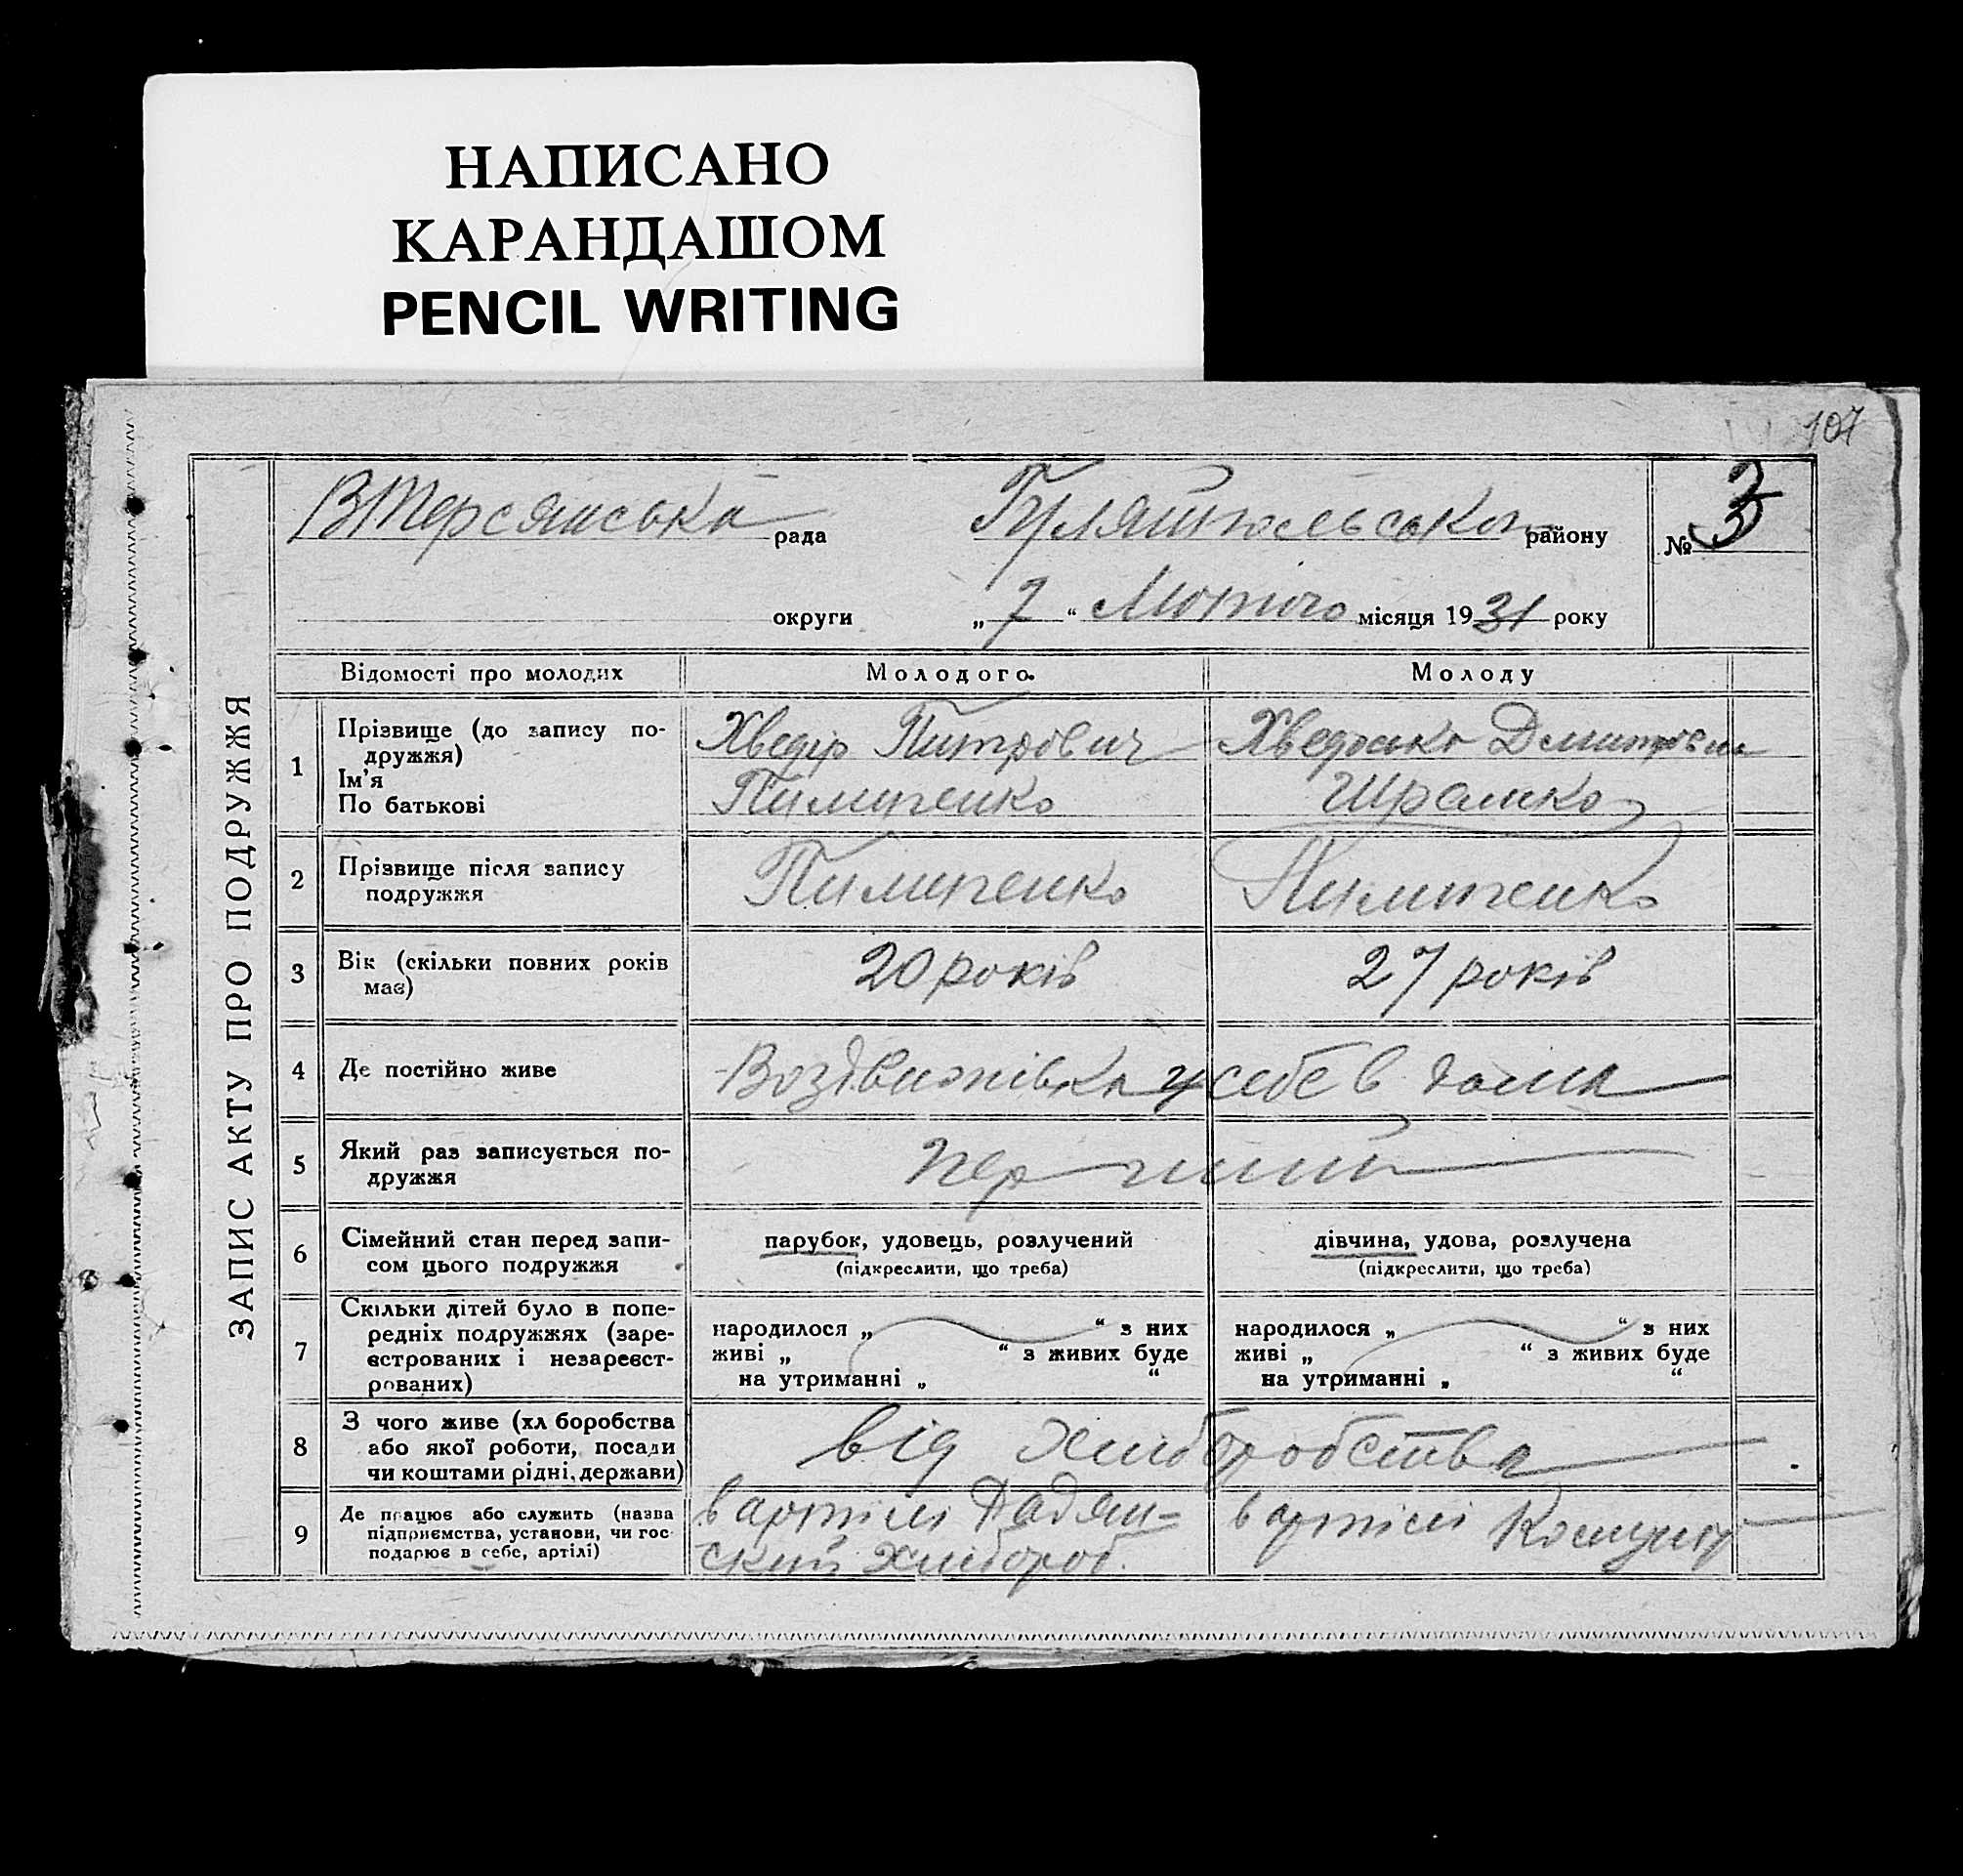 НАПИСАНО
КАРАНДАШОМ
PENCIL WRITING
107
ВТерсянська рада
району
№ 3
округи „7“ Лютого місяця 1931 року
ЗАПИС АКТУ ПРО ПОДРУЖЖЯ
Відомості про молодих Молодого Молоду
1 Прізвище (до запису по-
дружжя)
Ім'я
По батькові
Хведір Питрович
Пилипенко
Хведоська Дмитровна
Шрамко
2 Прізвище після запису
подружжя
Пилипенко Пилипенко
3 Вік (скільки повних років
має)
20 років 27 років
4 Де постійно живе
Воздвижівка у себе в дома
5 Який раз записується по-
дружжя
перший
6 Сімейний стан перед запи-
сом цього подружжя
парубок, удовець, розлучений
(підкреслити, що треба)
дівчина, удова, розлучена
(підкреслити, що треба)
7 Скільки дітей було в попе-
редніх подружжях (заре-
єстрованих і незареєст-
рованих)
народилося „ “ з них
живі „ “ з живих буде
на утриманні „ “
народилося „ “ з них
живі „ “ з живих буде
на утриманні „ “
8 З чого живе (хл боробства
або якої роботи, посади
чи коштами рідні, держави)
від хлиборобства
9 Де працює або служить (назва
підприємства, установи, чи гос
подарює в себе, артілі)
в артілі Радян-
ский Хлибороб.
в артілі